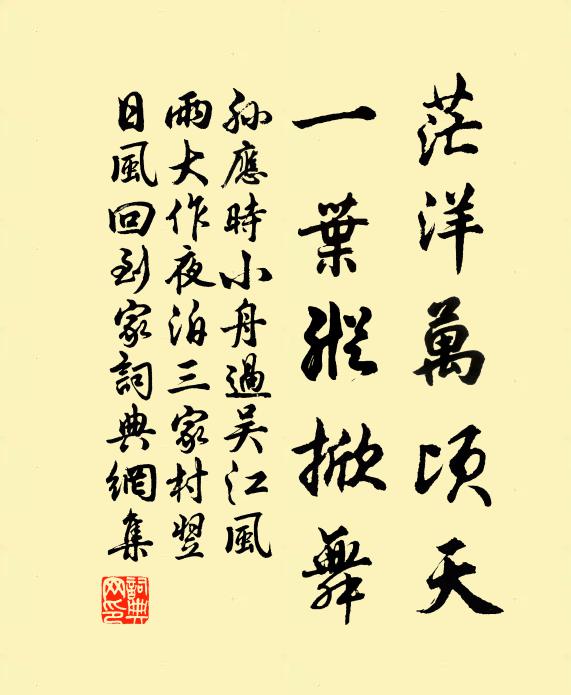 茫洋萬頃天
一葉縱掀舞
孫應時小舟過吴江風
雨大作夜泊三家村翌
日風回到家詞典網集
詞典网印